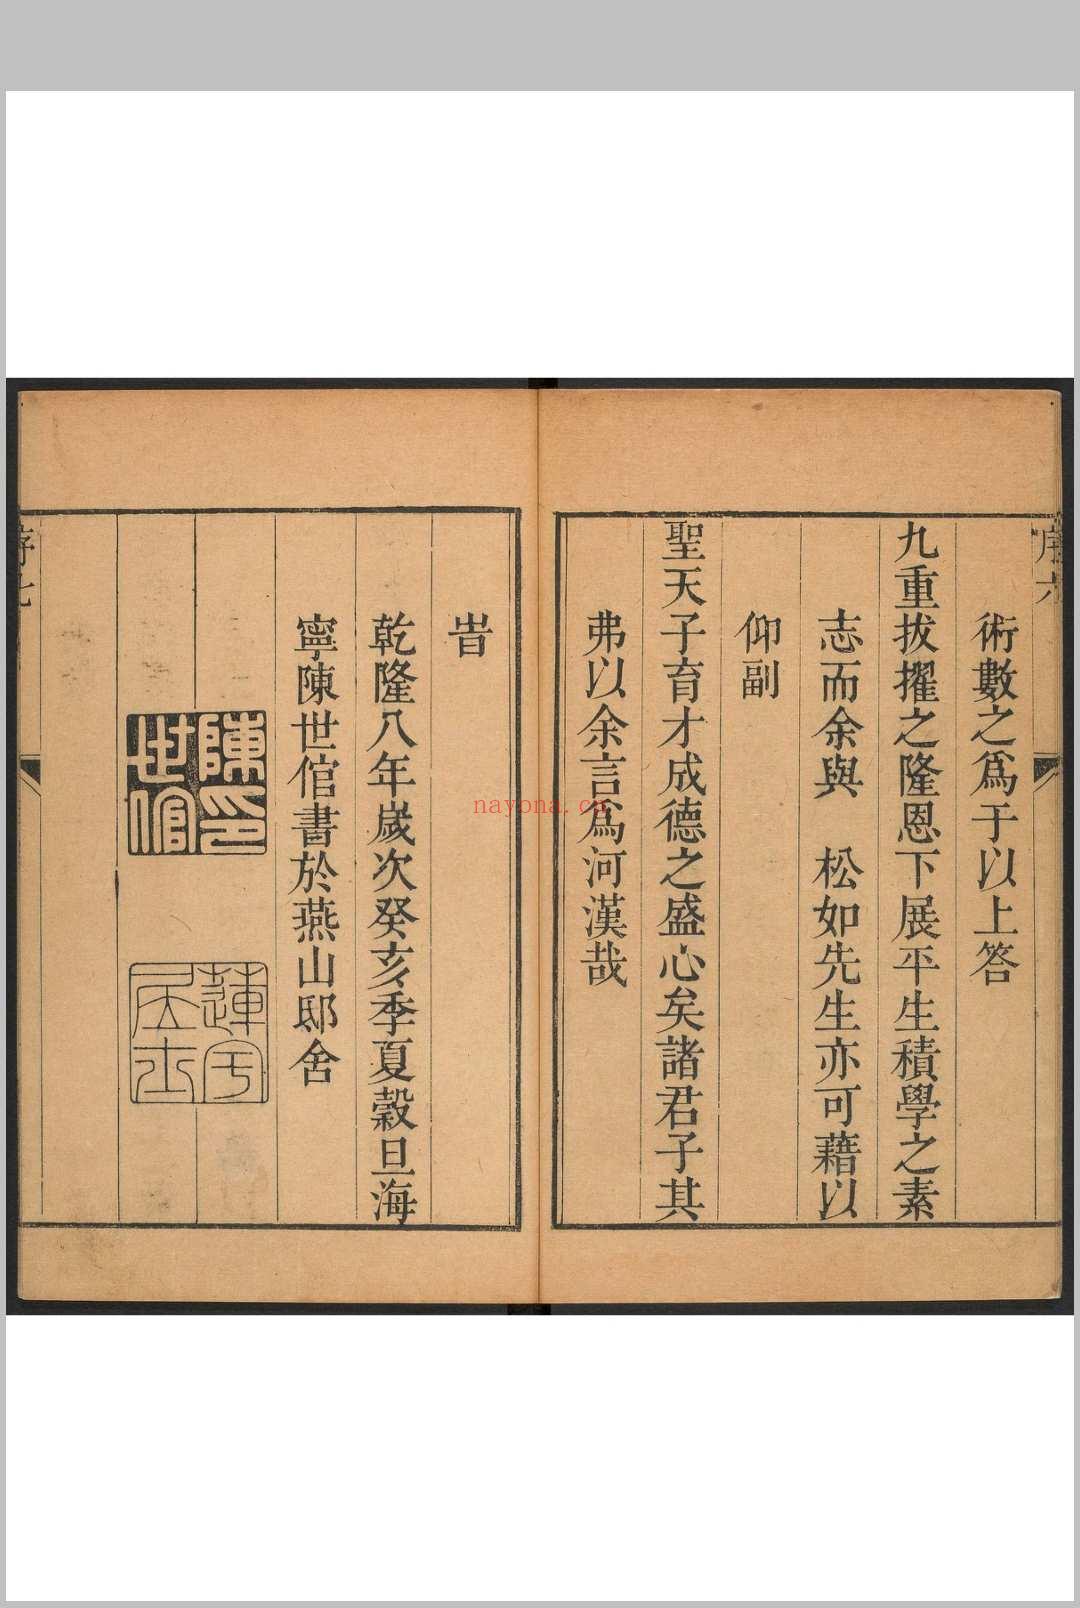 序六
術數之爲于以上答
九重拔擢之隆恩下展平生積學之素
志而余與　松如先生亦可藉以
仰副
聖天子育才成德之盛心矣諸君子其
弗以余言爲河漢哉
旹
乾隆八年歲次癸亥季夏穀旦海
寧陳世倌書於燕山邸舍
陳印
世倌
蓮宇
居士
序七
nayona.cn